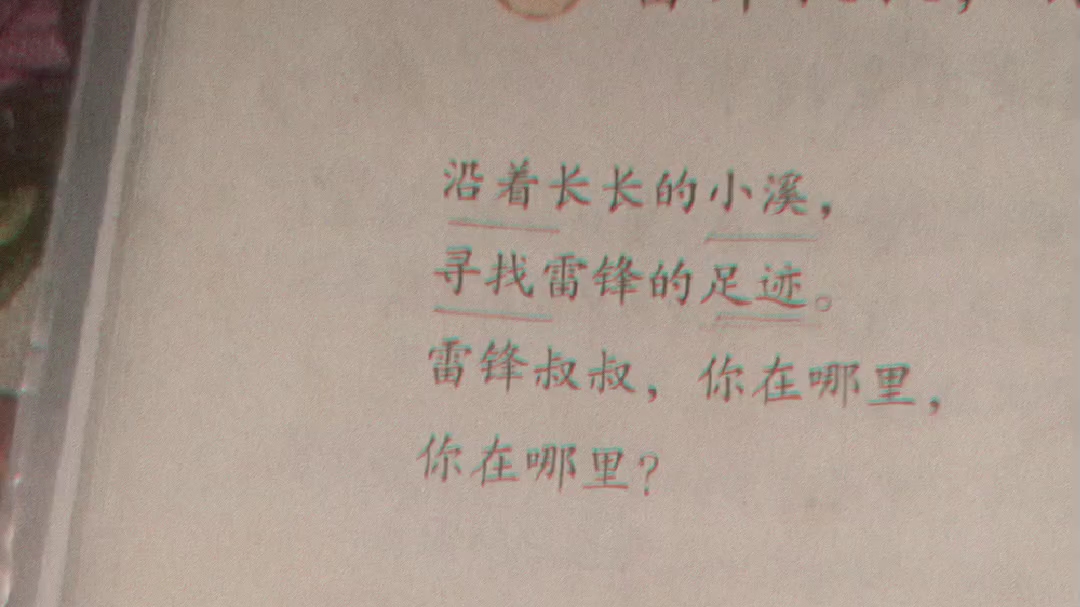 沿着长长的小溪，
寻找雷锋的足迹。
雷锋叔叔，你在哪里，
你在哪里？